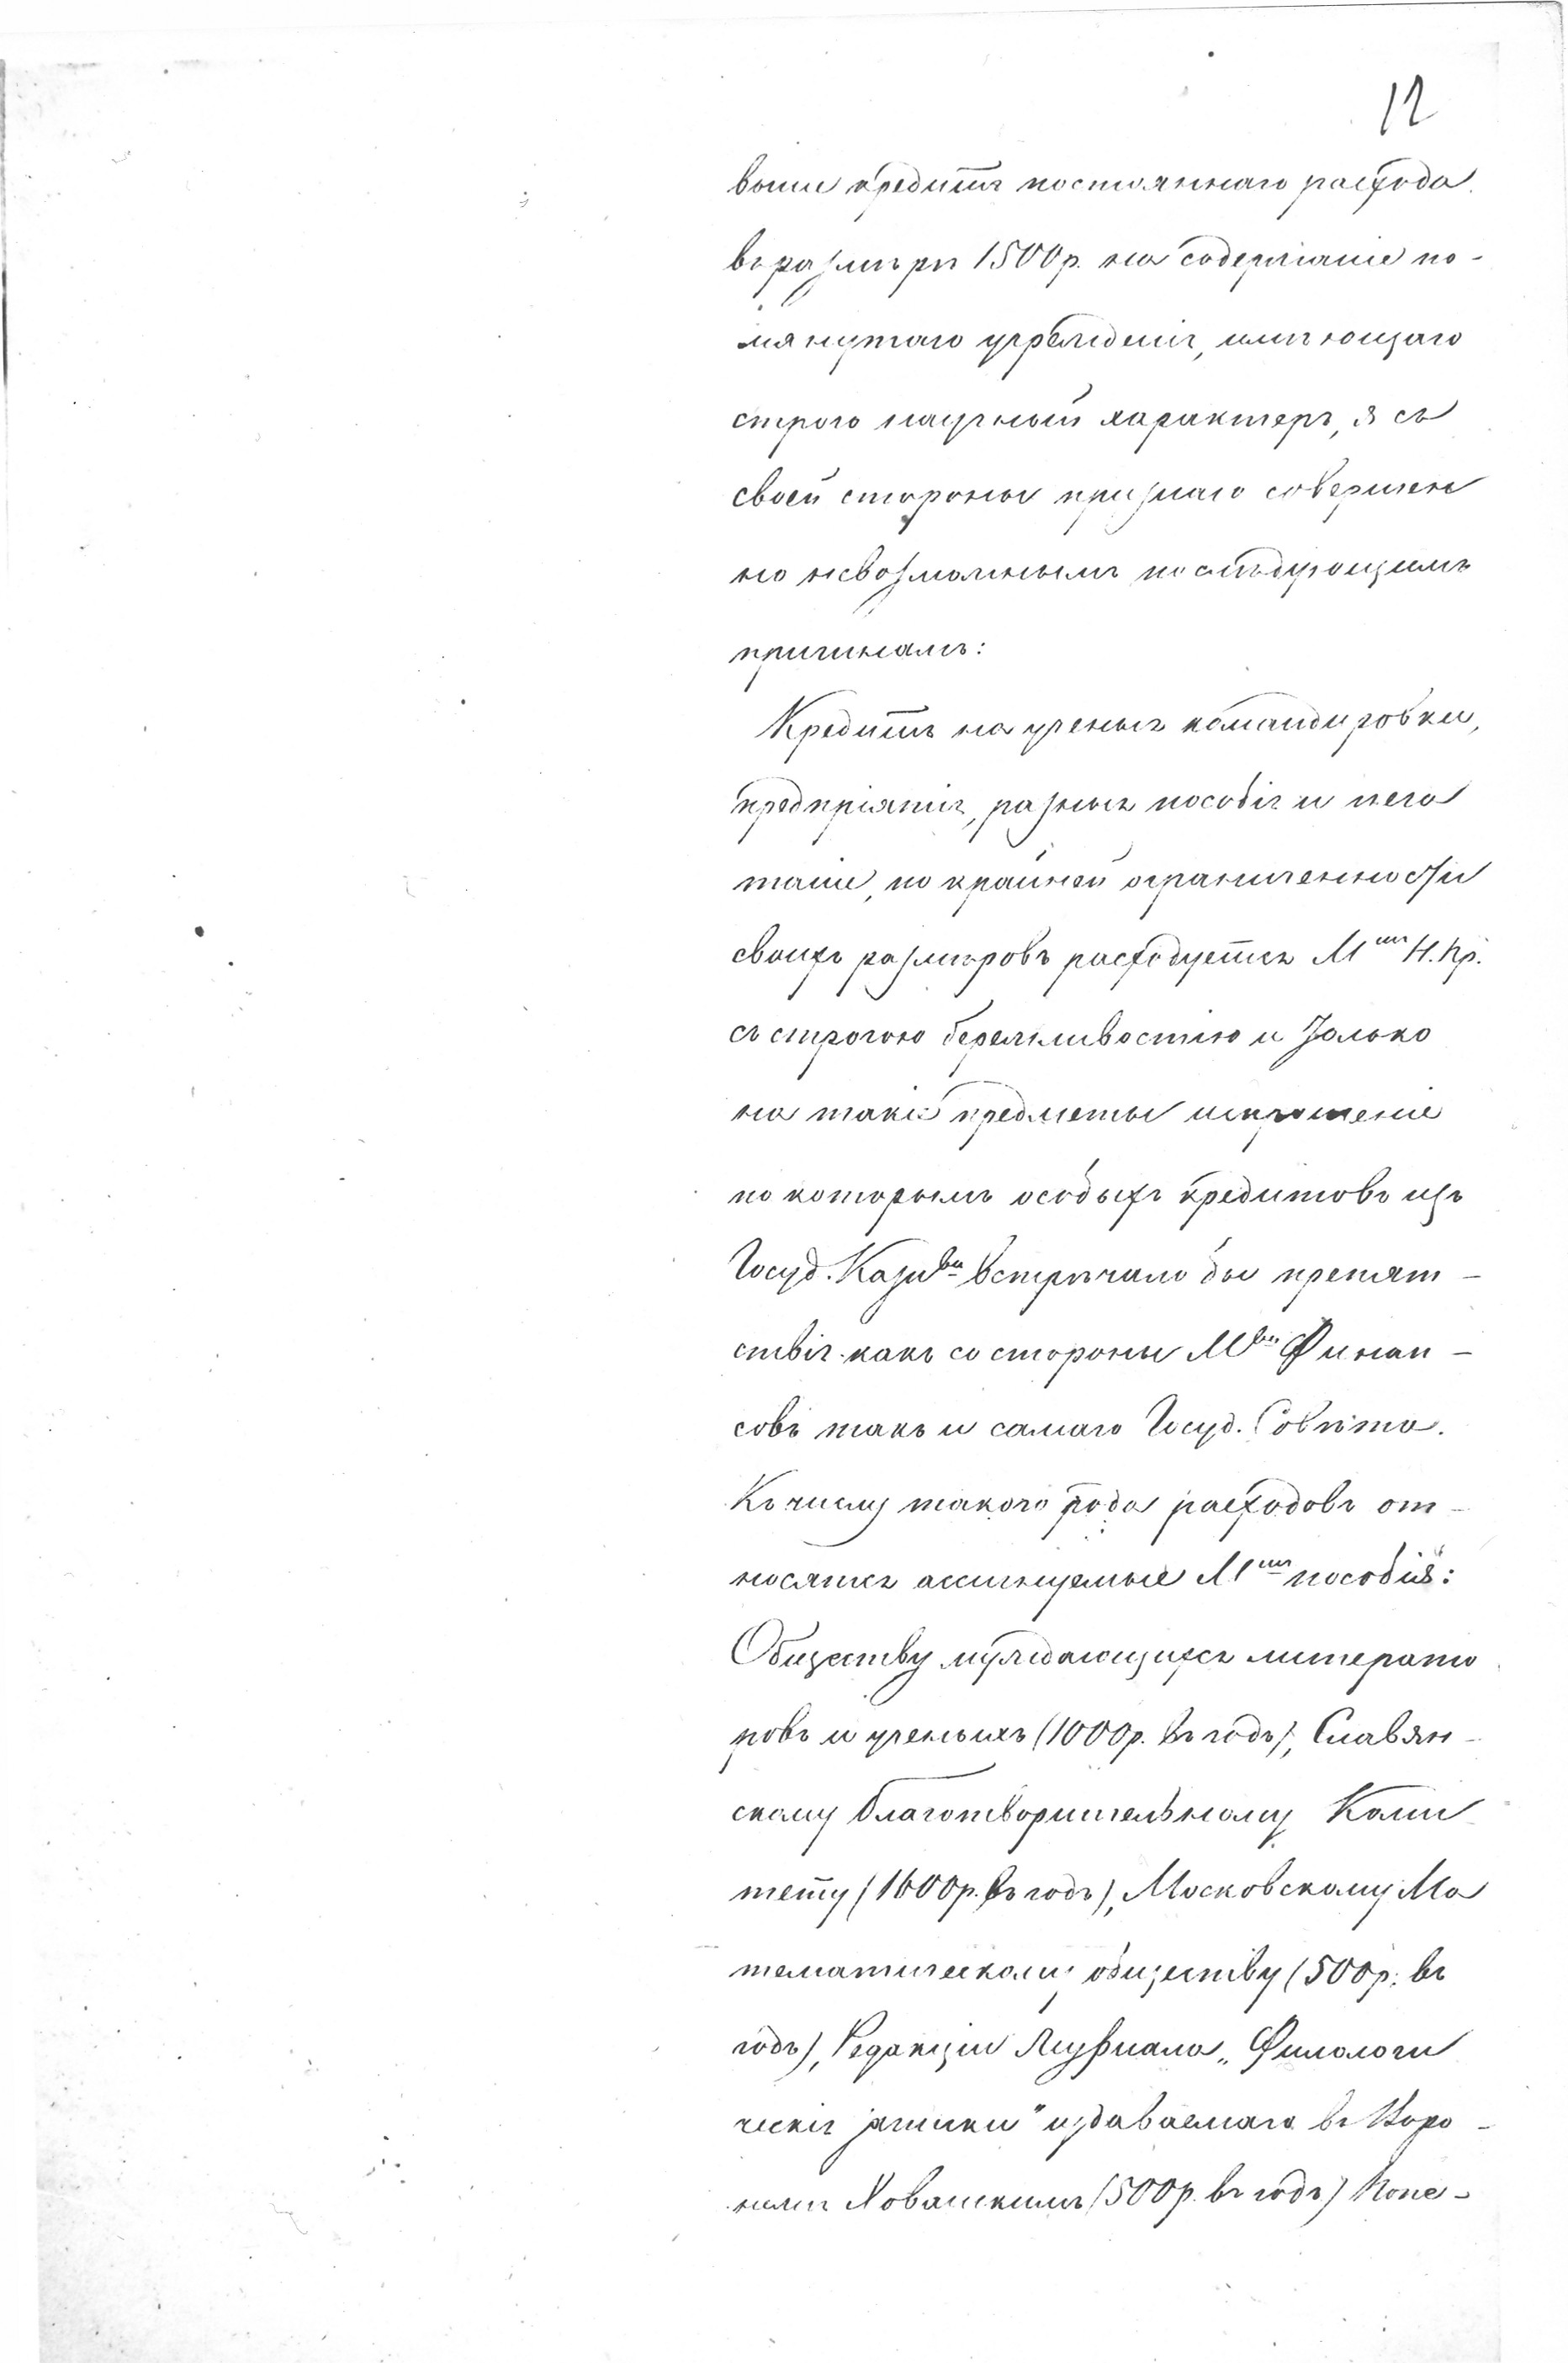 12
выше кредитъ постояннаго расхода
въ размѣрѣ 1500 р. на содержаніе по-
мянутаго учрежденія, имѣющаго
строго научный характеръ, я съ
своей стороны признаю совершен
но невозможнымъ по слѣдующимъ
причинамъ:
Кредитъ на ученыя командировки,
предпріятія, разныя пособія и печа
таніе, по крайней ограниченности
своихъ размѣровъ расходуется М-мъ Н. Пр.
съ строгою бережливостію и только
на такіе предметы испрошеніе
по которымъ особыхъ кредитовъ изъ
Госуд. Казн-ва встрѣчало бы препят-
ствія какъ со стороны М-ва Финан-
совъ такъ и самаго Госуд. Совѣта.
Къ числу такого рода расходовъ от-
носятся ассигнуемые М-мъ пособія:
Обществу нуждающихся литерато
ровъ и ученыхъ (1000 р. въ годъ), Славян-
скому благотворительному Коми
тету (1000 р. въ годъ), Московскому Ма
тематическому обществу (500 р. въ
годъ), Редакціи журнала „Филологи
ческія записки" издаваемаго въ Воро-
нежѣ Хованскимъ (500 р. въ годъ) Попе-